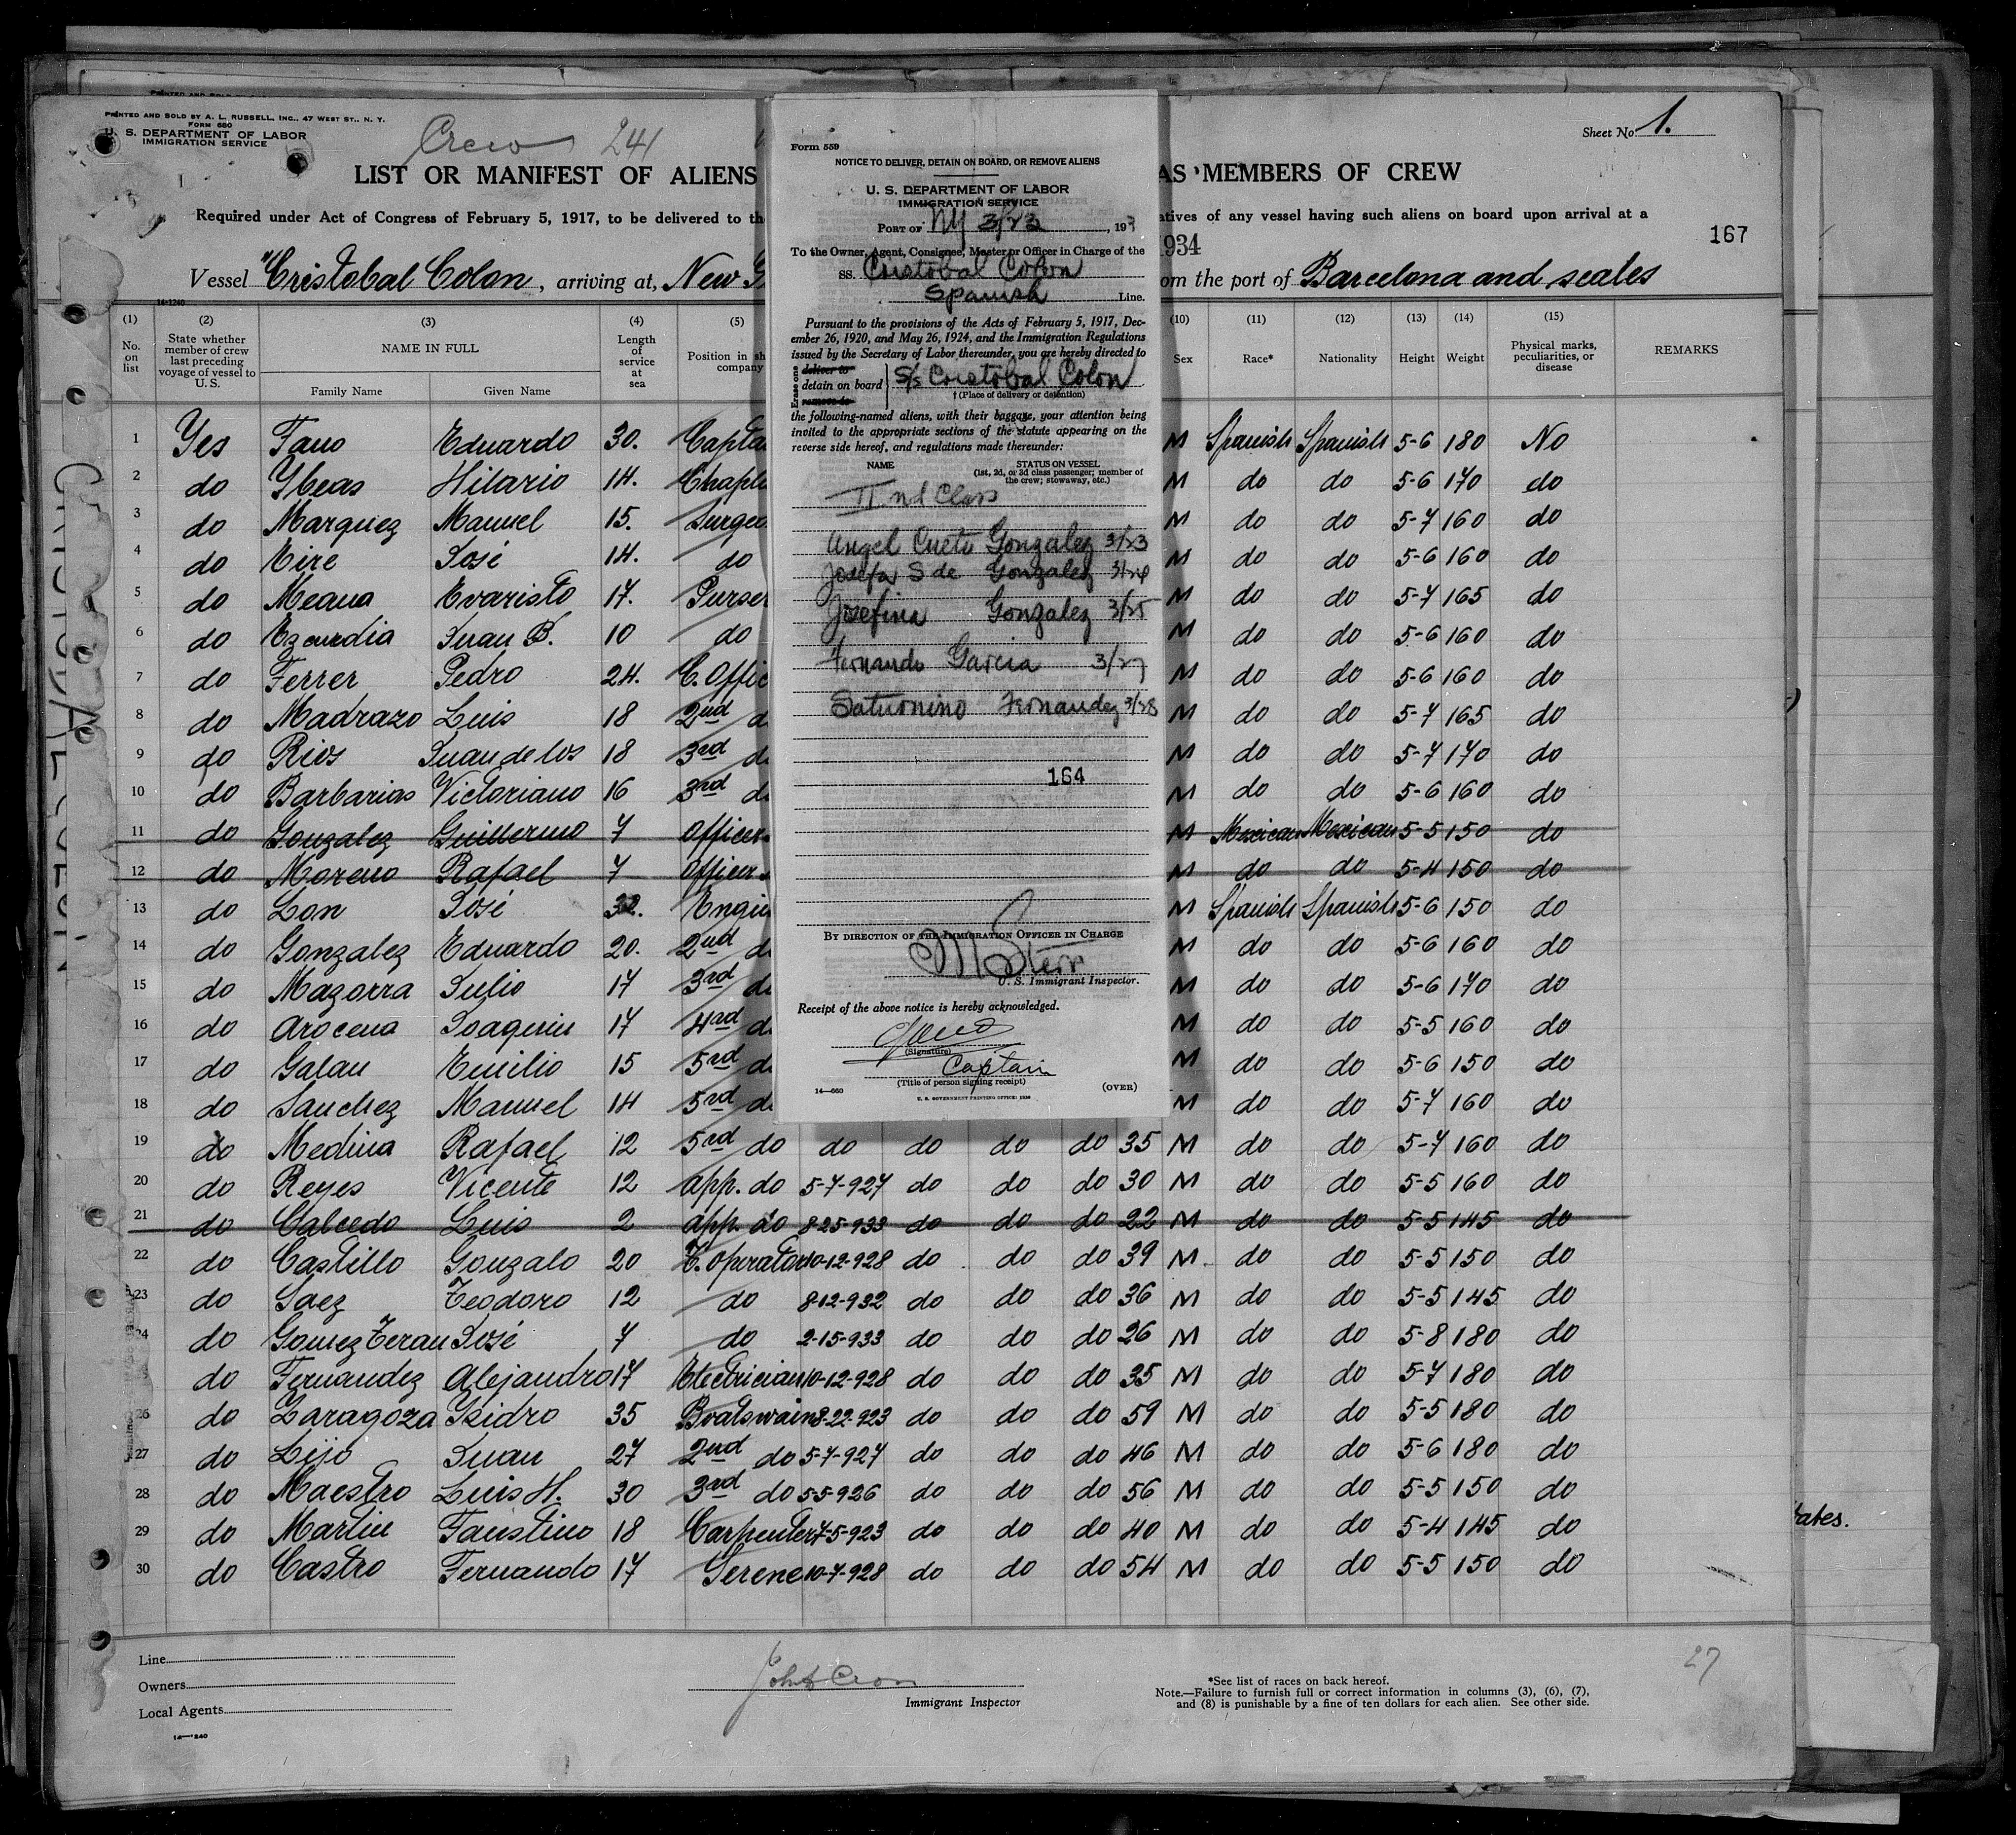 PRINTED AND SOLD BY A. L. RUSSELL, INC., 47 WEST ST., N. Y.
FORM 680
U. S. DEPARTMENT OF LABOR
IMMIGRATION SERVICE
Crew 241
Sheet No 1.
LIST OR MANIFEST OF ALIENS
AS MEMBERS OF CREW
Required under Act of Congress of February 5, 1917, to be delivered to th
atives of any vessel having such aliens on board upon arrival at a
1934
167
Vessel "Cristobal Colon, arriving at, New
om the port of Barcelona and scales
14-1240
(1) (2) (3) (4) (5) (10) (11) (12) (13) (14) (15)
No. on list
State whether member of crew last preceding voyage of vessel to U.S.
NAME IN FULL
Family Name Given Name
Length of service at sea
Position in sh company
Sex Race* Nationality Height Weight
Physical marks, peculiarities, or disease
REMARKS
1 Yes Fano Eduardo 30. Capta M Spanish Spanish 5-6 180 No
2 do Ybeas Hilario 14. Chapl M do do 5-6 170 do
3 do Marquez Manuel 15. Surgeo M do do 5-7 160 do
4 do Eire José 14. do M do do 5-6 160 do
5 do Meana Evaristo 17. Purser M do do 5-7 165 do
6 do Ezcurdia Juan B. 10 do M do do 5-6 160 do
7 do Ferrer Pedro 24. C. Offic M do do 5-6 160 do
8 do Madrazo Luis 18 2nd d M do do 5-7 165 do
9 do Rios Juan de los 18 3rd d M do do 5-7 170 do
10 do Barbarias Victoriano 16 3rd d M do do 5-6 160 do
11 do Gonzalez Guillermo 7 Officer M Mexican Mexican 5-5 150 do
12 do Moreno Rafael 7 Officer M do do 5-4 150 do
13 do Lon José 32. Engin M Spanish Spanish 5-6 150 do
14 do Gonzalez Eduardo 20. 2nd d M do do 5-6 160 do
15 do Mazorra Julio 17 3rd d M do do 5-6 170 do
16 do Arocena Joaquin 17 4rd d M do do 5-5 160 do
17 do Galan Emilio 15 5rd d M do do 5-6 150 do
18 do Sanchez Manuel 14 5rd d M do do 5-7 160 do
19 do Medina Rafael 12 5rd do do do do do 35 M do do 5-7 160 do
20 do Reyes Vicente 12 app. do 5-7-927 do do do 30 M do do 5-5 160 do
21 do Calcedo Luis 2 app. do 8-25-933 do do do 22 M do do 5-5 145 do
22 do Castillo Gonzalo 20 T. operator 10-12-928 do do do 39 M do do 5-5 150 do
23 do Saez Teodoro 12 do 8-12-932 do do do 36 M do do 5-5 145 do
24 do Gomez Teran José 7 do 2-15-933 do do do 26 M do do 5-8 180 do
do Fernandez Alejandro 17 Electrician 10-12-928 do do do 35 M do do 5-7 180 do
26 do Zaragoza Isidro 35 Boatswain 8-22-923 do do do 59 M do do 5-5 180 do
27 do Lijo Juan 27 2nd do 5-7-927 do do do 46 M do do 5-6 180 do
28 do Maestro Luis H. 30 3rd do 5-5-926 do do do 56 M do do 5-5 150 do
29 do Martin Faustino 18 Carpenter 7-5-923 do do do 40 M do do 5-4 145 do
30 do Castro Fernando 17 Serene 10-7-928 do do do 54 M do do 5-5 150 do
Line
Owners
Local Agents
14—1240
Immigrant Inspector
*See list of races on back hereof.
Note.—Failure to furnish full or correct information in columns (3), (6), (7),
and (8) is punishable by a fine of ten dollars for each alien. See other side.
27
ates.
Form 559
NOTICE TO DELIVER, DETAIN ON BOARD, OR REMOVE ALIENS
U. S. DEPARTMENT OF LABOR
IMMIGRATION SERVICE
PORT OF NY 3/23, 193
To the Owner, Agent, Consignee, Master or Officer in Charge of the
SS. Cristobal Colon
Spanish Line.
Pursuant to the provisions of the Acts of February 5, 1917, Dec-
ember 26, 1920, and May 26, 1924, and the Immigration Regulations
issued by the Secretary of Labor thereunder, you are hereby directed to
Erase one
deliver to
detain on board S/s Cristobal Colon
remove to
† (Place of delivery or detention)
the following-named aliens, with their baggage, your attention being
invited to the appropriate sections of the statute appearing on the
reverse side hereof, and regulations made thereunder:
NAME STATUS ON VESSEL
(1st, 2d, or 3d class passenger; member of the crew; stowaway, etc.)
II nd Class
Angel Cueto Gonzalez 3/23
Josefa S de Gonzalez 3/24
Josefina Gonzalez 3/25
Fernando Garcia 3/27
Saturnino Fernandez 3/28
164
BY DIRECTION OF THE IMMIGRATION OFFICER IN CHARGE
U. S. Immigrant Inspector.
Receipt of the above notice is hereby acknowledged.
Fano
(Signature)
Captain
(Title of person signing receipt)
14—660
(OVER)
U. S. GOVERNMENT PRINTING OFFICE: